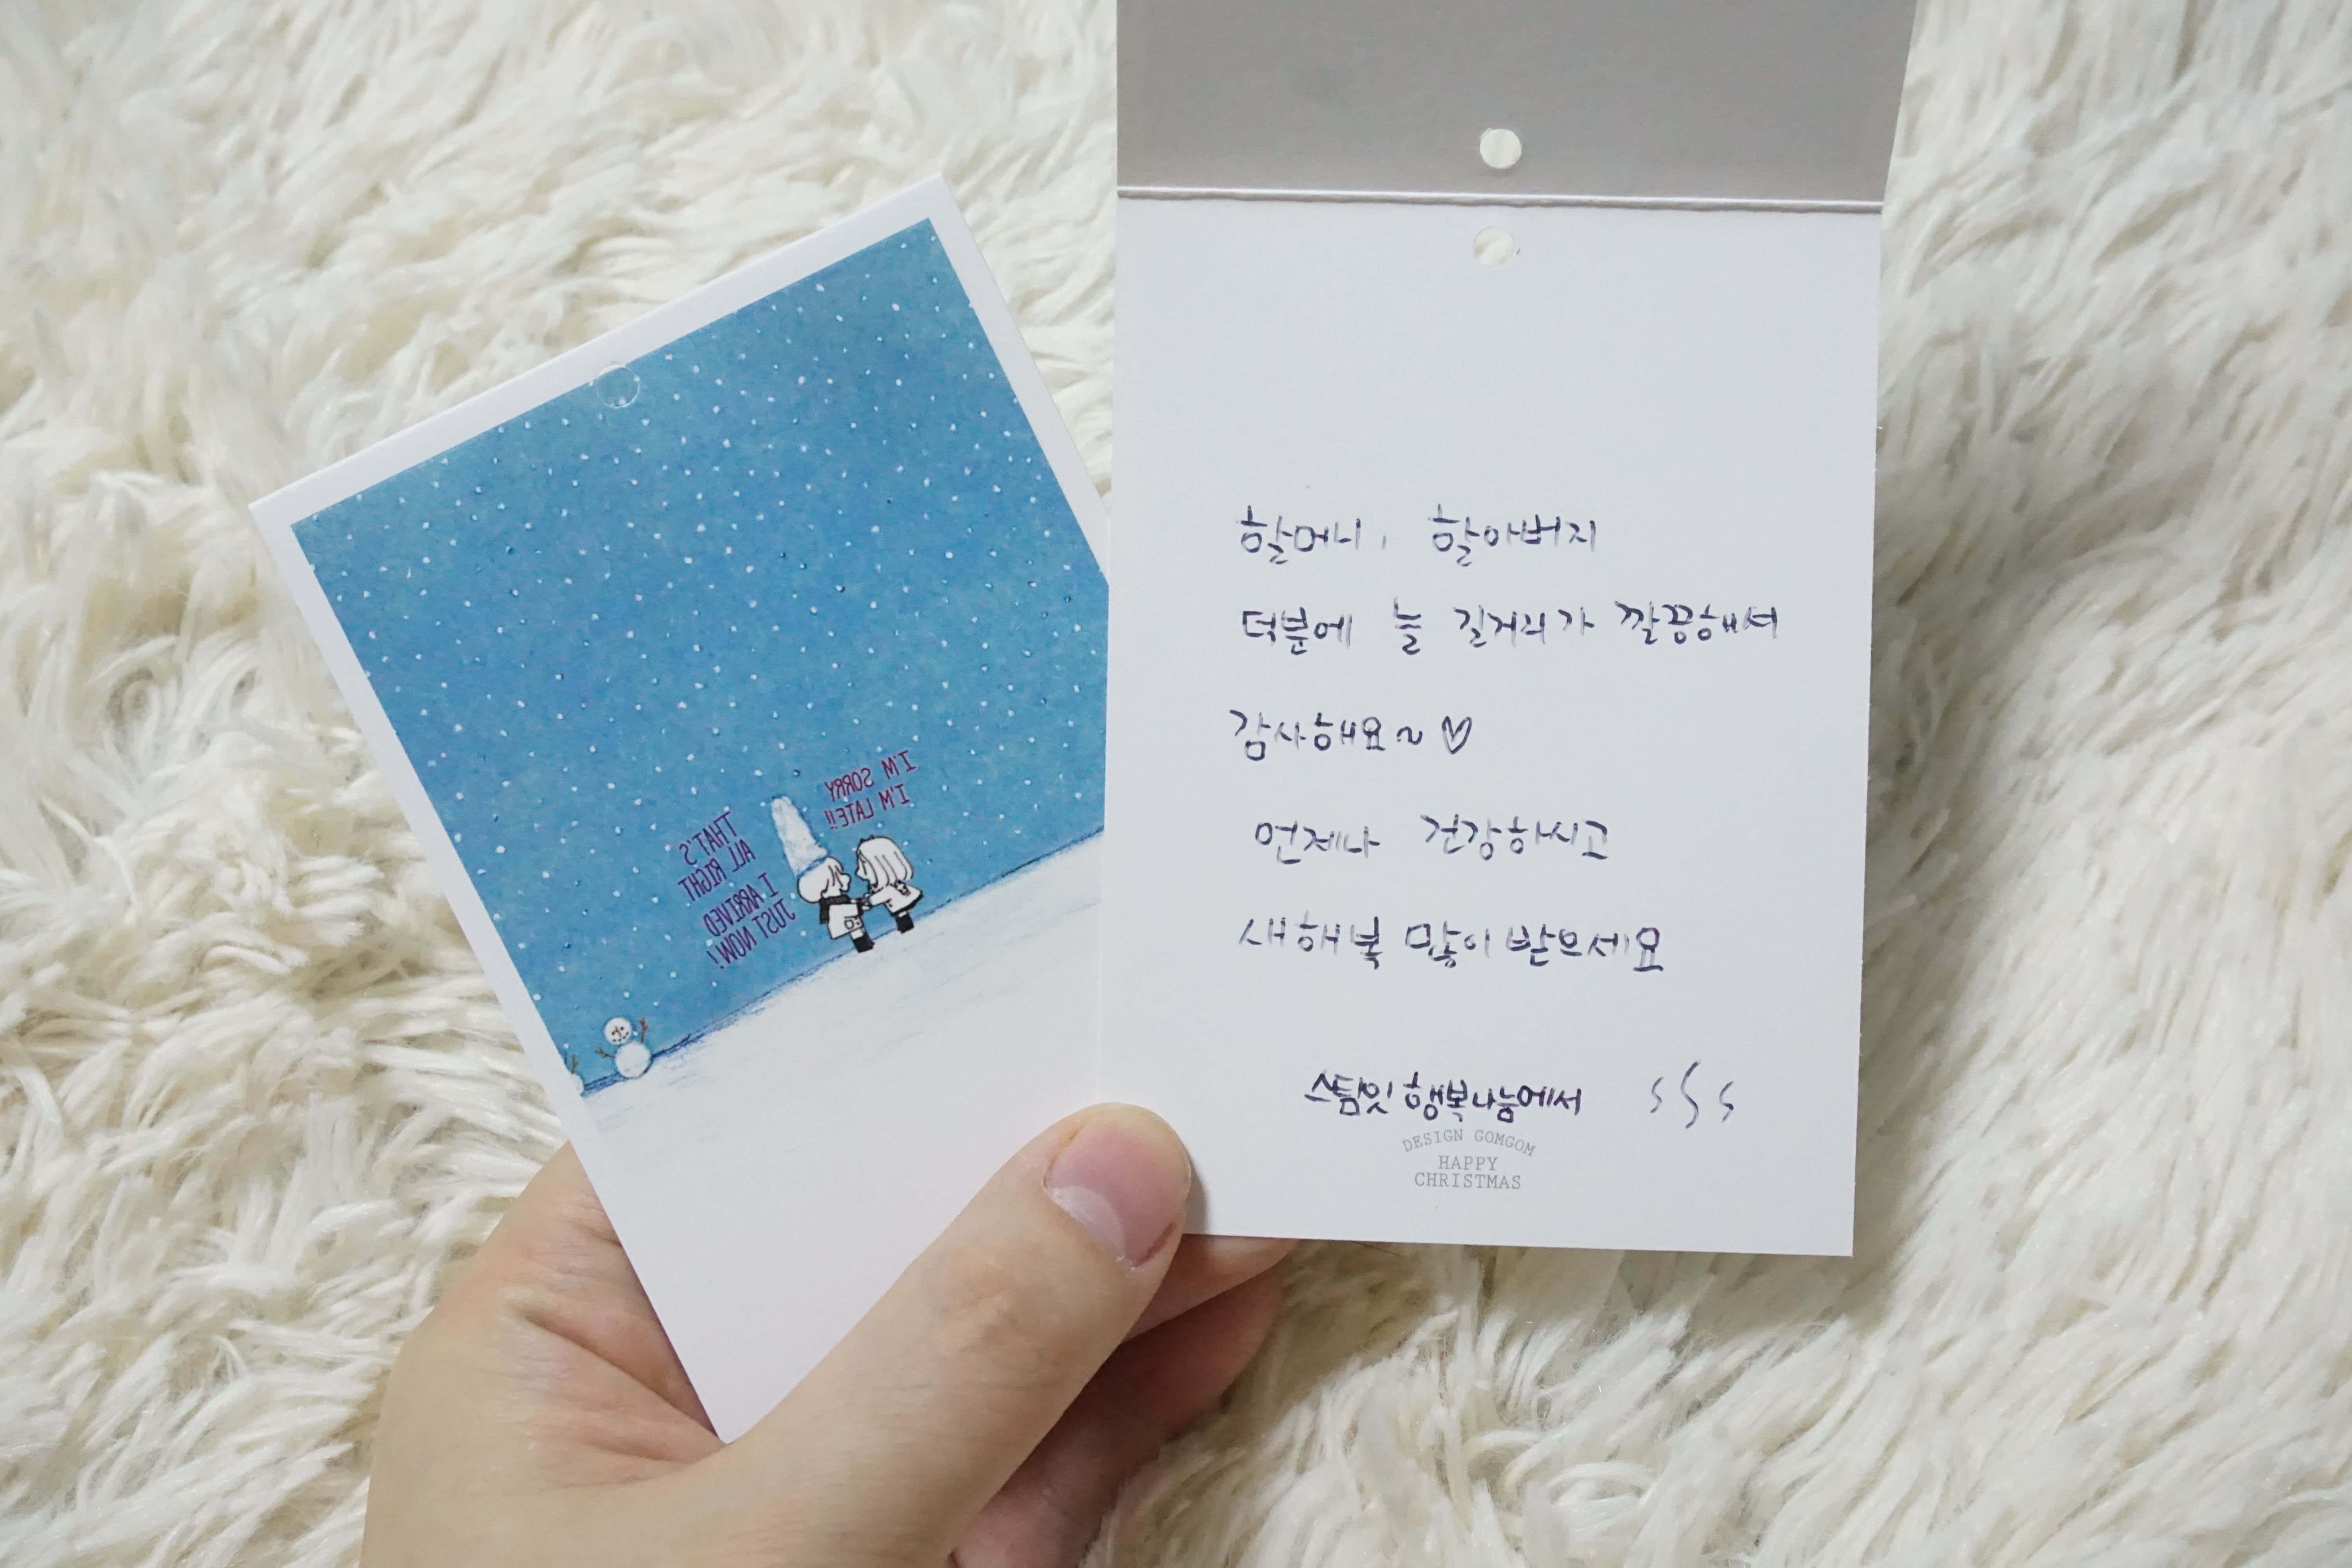 I'M SORRY
I'M LATE!!
THAT'S
ALL RIGHT
I ARRIVED
JUST NOW!
할머니, 할아버지
덕분에 늘 길거리가 깔끔해서
감사해요~♡
언제나 건강하시고
새해복 많이 받으세요
스팀잇 행복나눔에서
DESIGN GOMGOM
HAPPY
CHRISTMAS